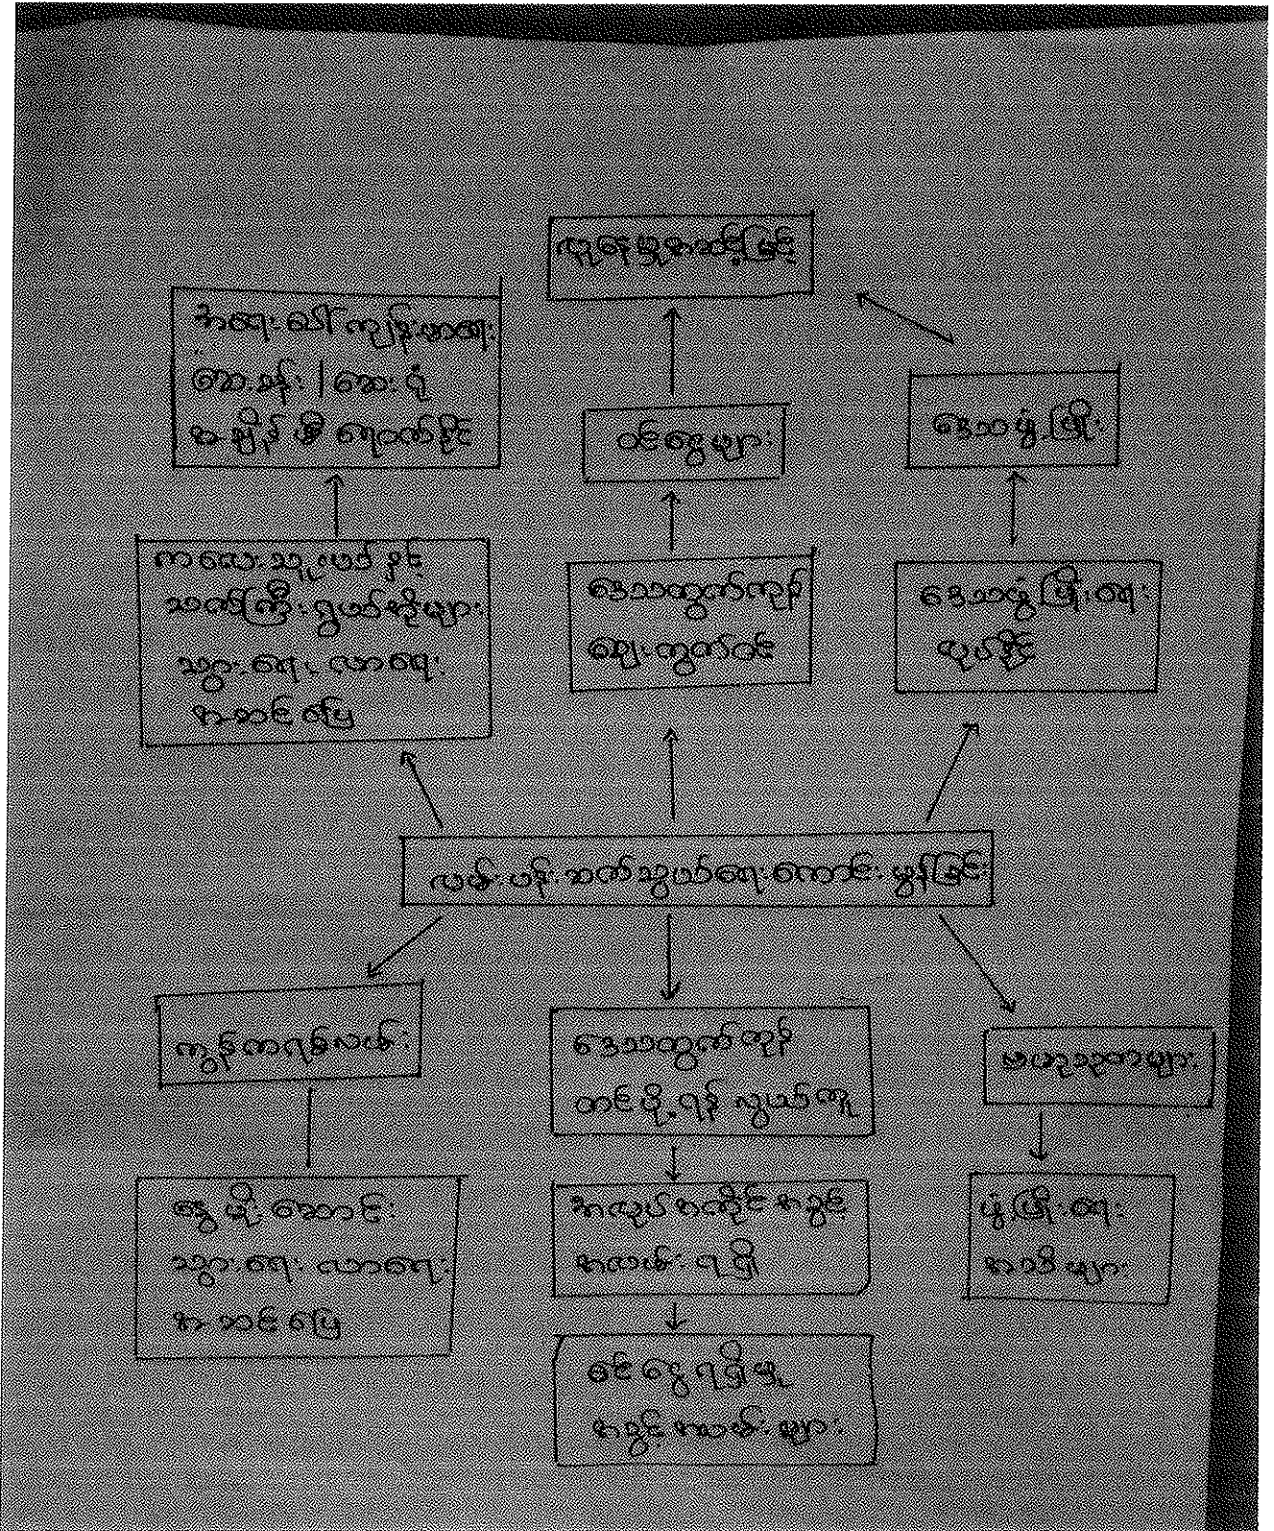 လူနေမှုအဆင့်မြင့်
အရေးပေါ် ကျန်းမာရေး
ဆေးခန်း / ဆေးရုံ
အချိန်မီ ရောက်နိုင်
ဝင်ငွေများ
ဒေသဖွံ့ဖြိုး
ကလေးသူငယ်နှင့်
သက်ကြီးရွယ်အိုများ
သွားရေးလာရေး
အဆင်ပြေ
ဒေသထွက်ကုန်
ဈေးကွက်ဝင်
ဒေသဖွံ့ဖြိုးရေး
လုပ်နိုင်
လမ်းပန်းဆက်သွယ်ရေးကောင်းမွန်ခြင်း
ကွန်ကရစ်လမ်း
ဒေသထွက်ကုန်
တင်ပို့ရန် လွယ်ကူ
ဗဟုသုတများ
နွေ မိုး ဆောင်း
သွားရေး လာရေး
အဆင်ပြေ
အလုပ်အကိုင်အခွင့်
အလမ်းရရှိ
ဖွံ့ဖြိုးရေး
အသိများ
ဝင်ငွေရရှိမှု
အခွင့်အလမ်းများ